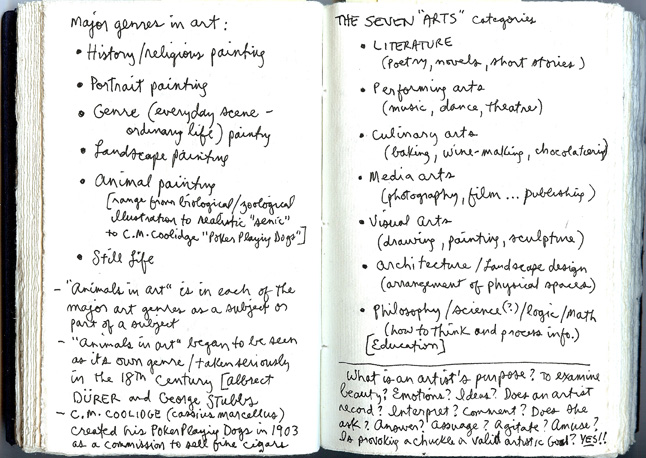 Major genres in art:
• History/religious painting
• Portrait painting
• Genre (everyday scene -
ordinary life) painting
• Landscape painting
• Animal painting
[range from biological/zoological
illustration to realistic "scenic"
to C.M. Coolidge "Poker Playing Dogs"]
• Still Life
- "Animals in art" is in each of the
major art genres as a subject or
part of a subject
- "Animals in art" began to be seen
as its own genre/taken seriously
in the 18th Century [Albrect
DÜRER and George Stubbs
- C.M. COOLIDGE (Cassius Marcellus)
created his Poker Playing Dogs in 1903
as a commission to sell fine cigars
THE SEVEN "ARTS" Categories
• LITERATURE
(Poetry, novels, short stories)
• Performing arts
(music, dance, theatre)
• Culinary arts
(baking, wine-making, chocolatering)
• Media arts
(photography, film ... publishing)
• Visual Arts
(drawing, painting, sculpture)
• architecture/Landscape design
(arrangement of physical spaces)
• Philosophy/science(?)/logic/Math
(how to think and process info.)
[Education]
What is an artist's purpose? To examine
beauty? Emotions? Ideas? Does an artist
record? Interpret? Comment? Does she
ask? Answer? Assuage? Agitate? Amuse?
Is provoking a chuckle a valid artistic Goal? YES!!